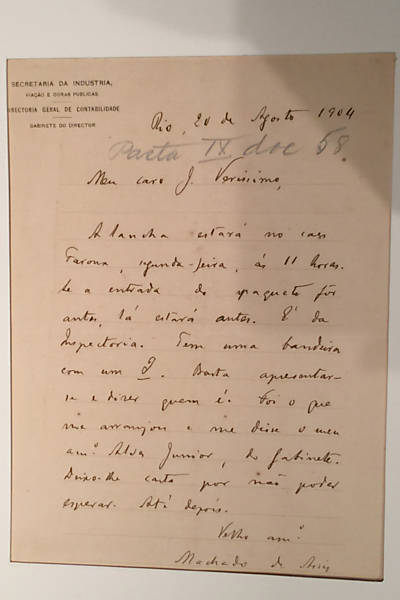 SECRETARIA DA INDUSTRIA,
VIAÇÃO E OBRAS PUBLICAS
DIRECTORIA GERAL DE CONTABILIDADE
GABINETE DO DIRECTOR
Rio, 20 de Agosto 1904
Pasta IX doc 58.
Meu caro J. Verissimo,
A lancha estará no caes
Faroux, segunda-feira, ás 11 horas.
Se a entrada do paquete fôr
antes, lá estará antes. É da
Inspectoria. Tem uma bandeira
com um I. Basta apresentar-
se e dizer quem é. Foi o que
me arranjou e me disse o meu
am.º Alves Junior, do gabinete.
Deixo-lhe carta por não poder
esperar. Até depois.
Velho am.º
Machado de Assis